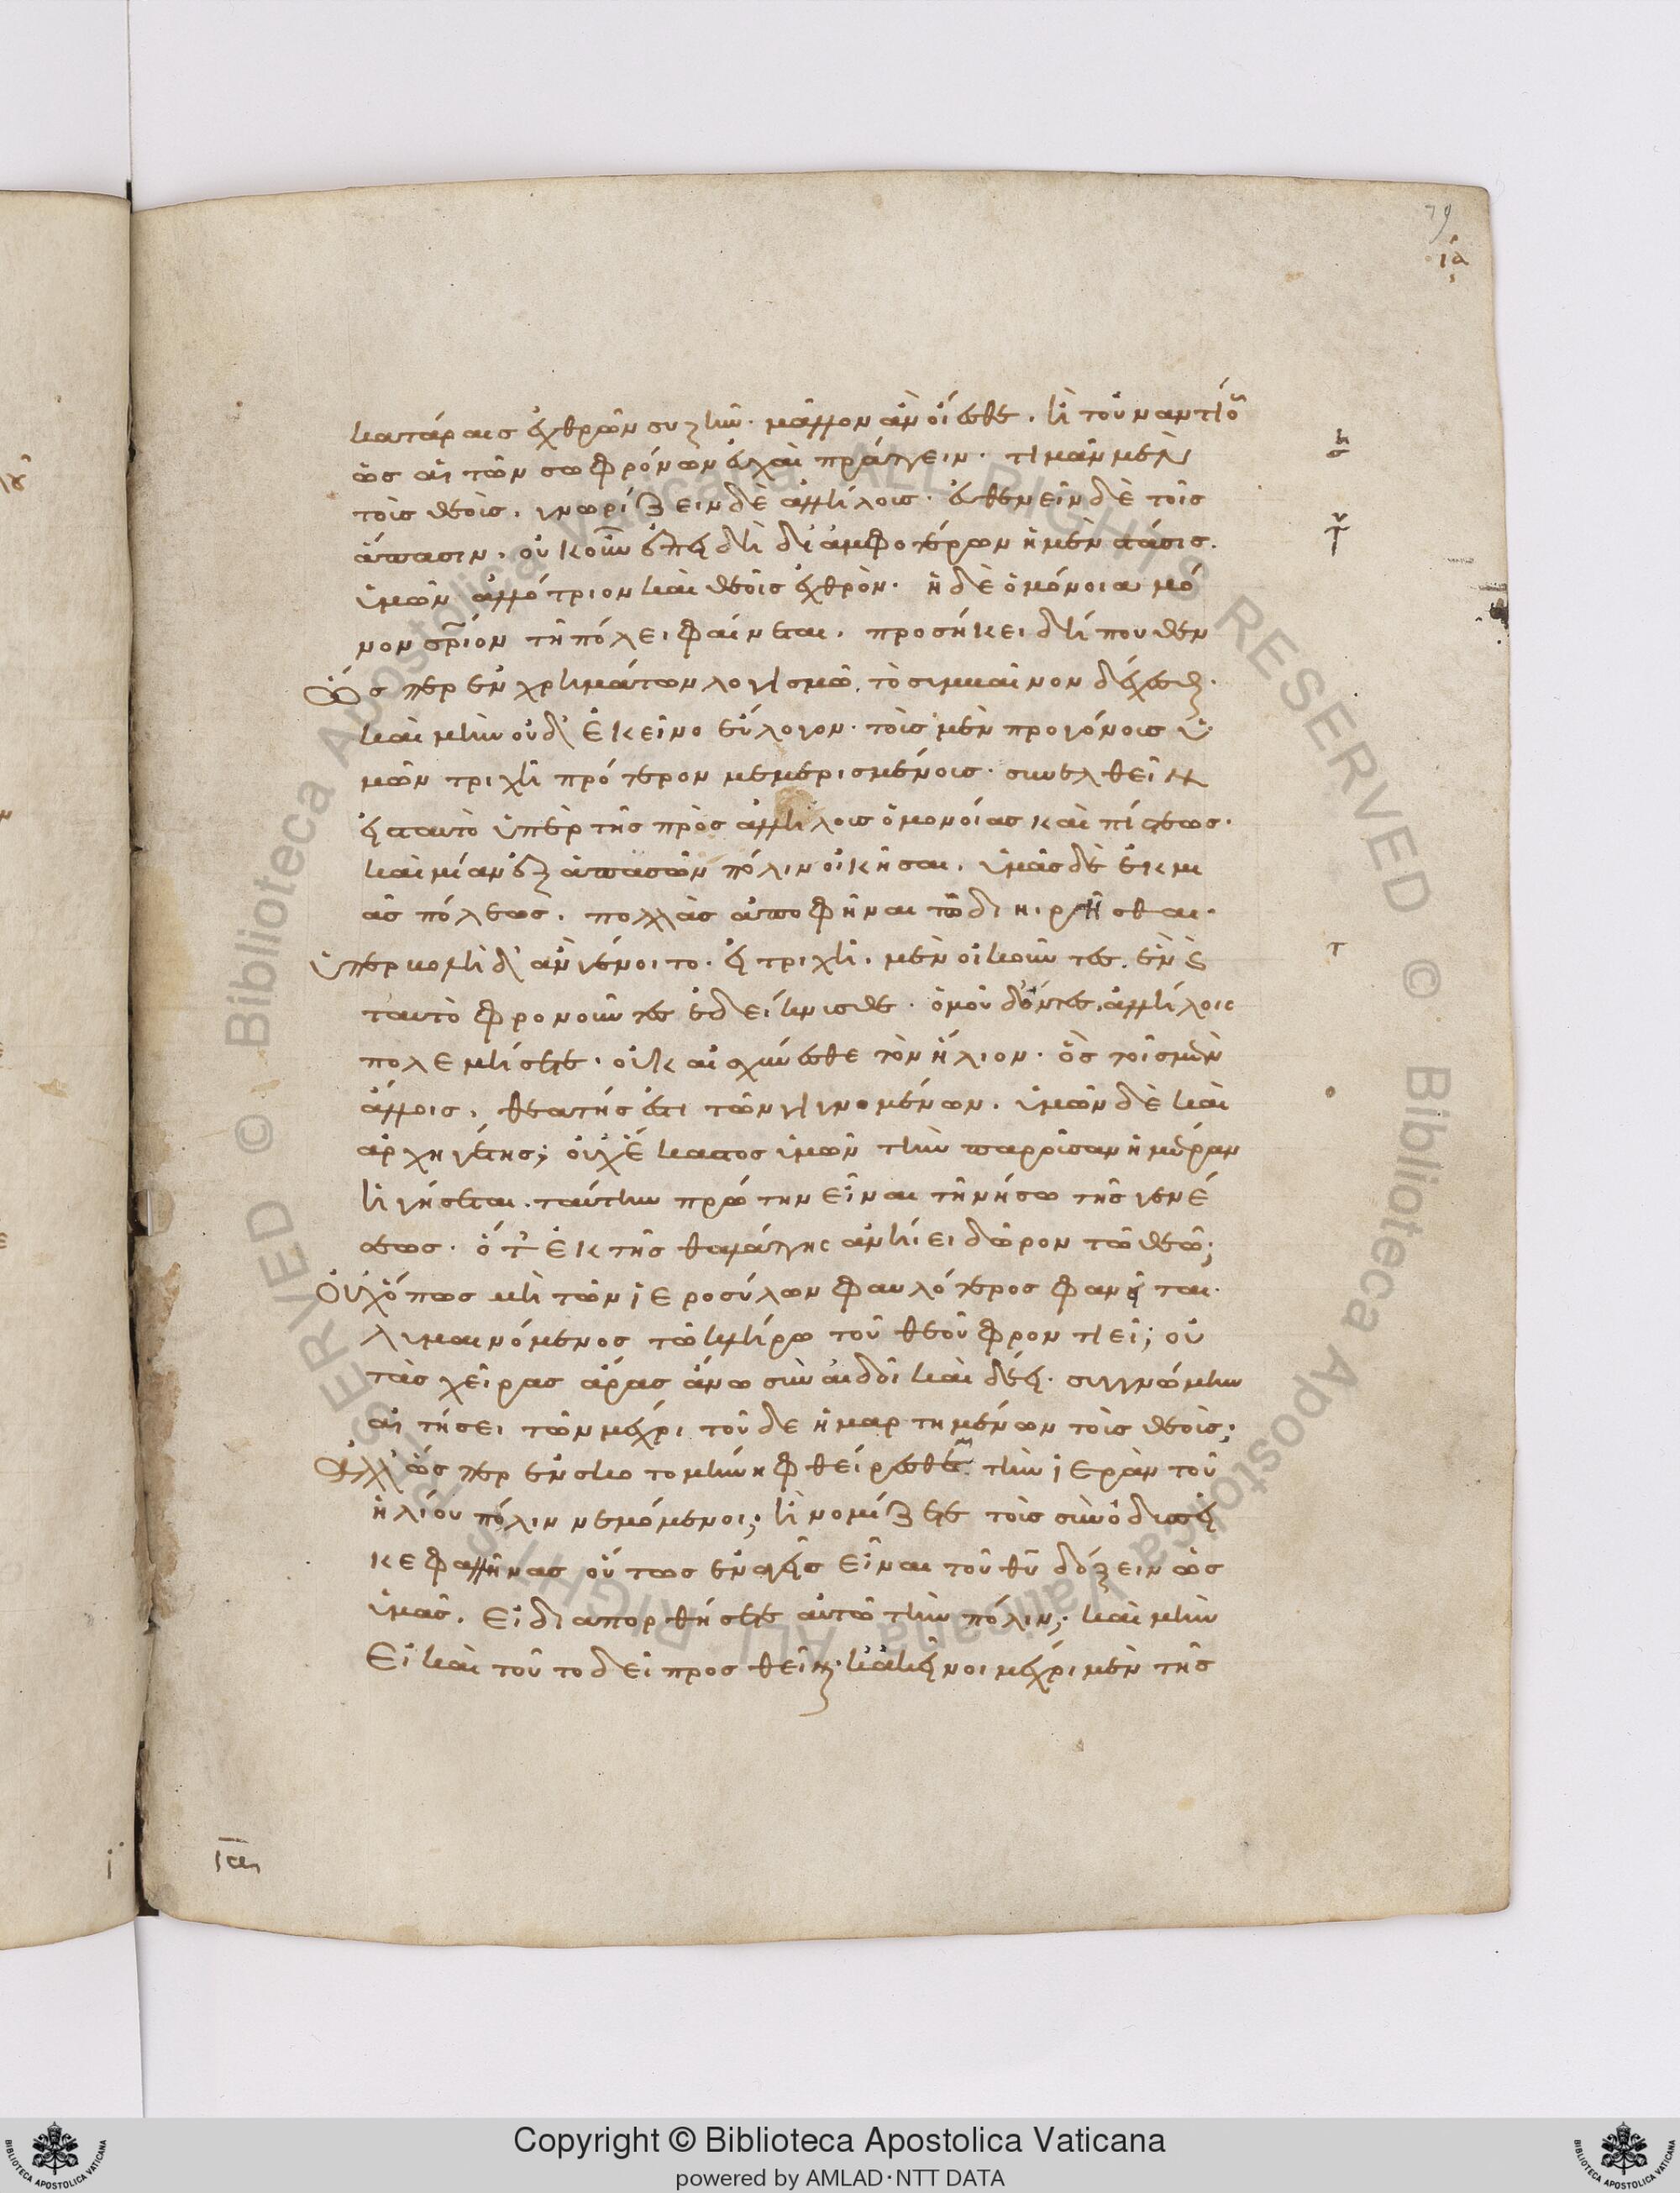 79
ια
κατάραις ἐχθρῶν συζῆν· μᾶλλον ἂν οἴεσθε. ἢ τοὐναντίον
ὡς αἱ τῶν σωφρόνων εὐχαὶ πράττειν· τιμᾶν μὲν
τοῖς θεοῖς. γνωρίζειν δὲ ἀλλήλοις·
ἅπασιν. οὐκοῦν ἐπειδὴ δι' ἀμφοτέρων ἡ μὲν στάσις.
ὑμῶν ἀλλότριον καὶ θεοῖς ἐχθρὸν· ἡ δὲ ὁμόνοια μό
νον σ̅ρ̅ιον τῆ πόλει φαίνεται. προσήκει δήπουθεν
ὥσπερ ἐν χρημάτων λογισμῶ. τὸ συμβαῖνον δέχεσθαι·
καὶ μὴν οὐδ' ἐκεῖνο εὔλογον· τοῖς μὲν προγόνοις ὑ
μῶν τριχῆ πρότερον μεμερισμένοις· συνελθεῖν
εἰς ταυτὸ ὑπὲρ τῆς πρὸς ἀλλήλους ὁμονοίας καὶ πίστεως·
καὶ μίαν ἐξ ἁπασῶν πόλιν οἰκῆσαι. ὑμᾶς δὲ ἐκ μι
ᾶς πόλεως. πολλὰς ἀποφῆναι τῶ διηιρῆσθαι·
ὑπερκομιδῆ ἂν γένοιτο. εἰ τριχῆ. μὲν οἰκοῦντες. ἓν καὶ
ταυτὸ φρονοῦντες ἐδείκνυσθε· ὁμοῦ δ' ὄντες. ἀλλήλοις
πολεμήσετε· οὐκ αἰσχύνεσθε τὸν ἥλιον· ὃς τοῖς μὲν
ἄλλοις. θεατής ἐστι τῶν γιγνομένων. ὑμῶν δὲ καὶ
ἀρχηγέτης; οὐχ' ἕκαστος ὑμῶν τὴν παροῦσαν ἡμέραν
ἡγήσεται. ταύτην πρώτην εἶναι τῆ νήσω τῆς γενέ
σεως. ὅτ' ἐκ τῆς θαλάττης ἀνήιει δῶρον τῶ θεῶ;
Οὐχ' ὅπως μὴ τῶν ἱεροσύλων φαυλότερος φανεῖται·
λυμαινόμενος τῶ κλήρω τοῦ θεοῦ φροντιεῖ; οὐ
τὰς χεῖρας ἄρας ἄνω σὺν αἰδοῖ καὶ δέει. συγγνώμην
αἰτήσει τῶν μέχρι τοῦδε ἡμαρτημένων τοῖς θεοῖς;
Ἀλλ' ὥσπερ ἐν σκοτομήνη φθείρεσθε. τὴν ἱερὰν τοῦ
ἡλίου πόλιν νεμόμενοι; ἢ νομίζετε τοὺς σὺν ὀδυσσεῖ
κεφαλλῆνας οὕτως ἐναγεῖς εἶναι τοῦ θ̅υ̅ δόξειν ὡς
ὑμᾶς. εἰ διαπορθήσετε αὐτῶ τὴν πόλιν; καὶ μὴν
Εἰ καὶ τοῦτο δεῖ προσθεῖναι. κἀκεῖνοι μέχρι μὲν τῆς
ια
Copyright © Biblioteca Apostolica Vaticana
powered by AMLAD·NTT DATA